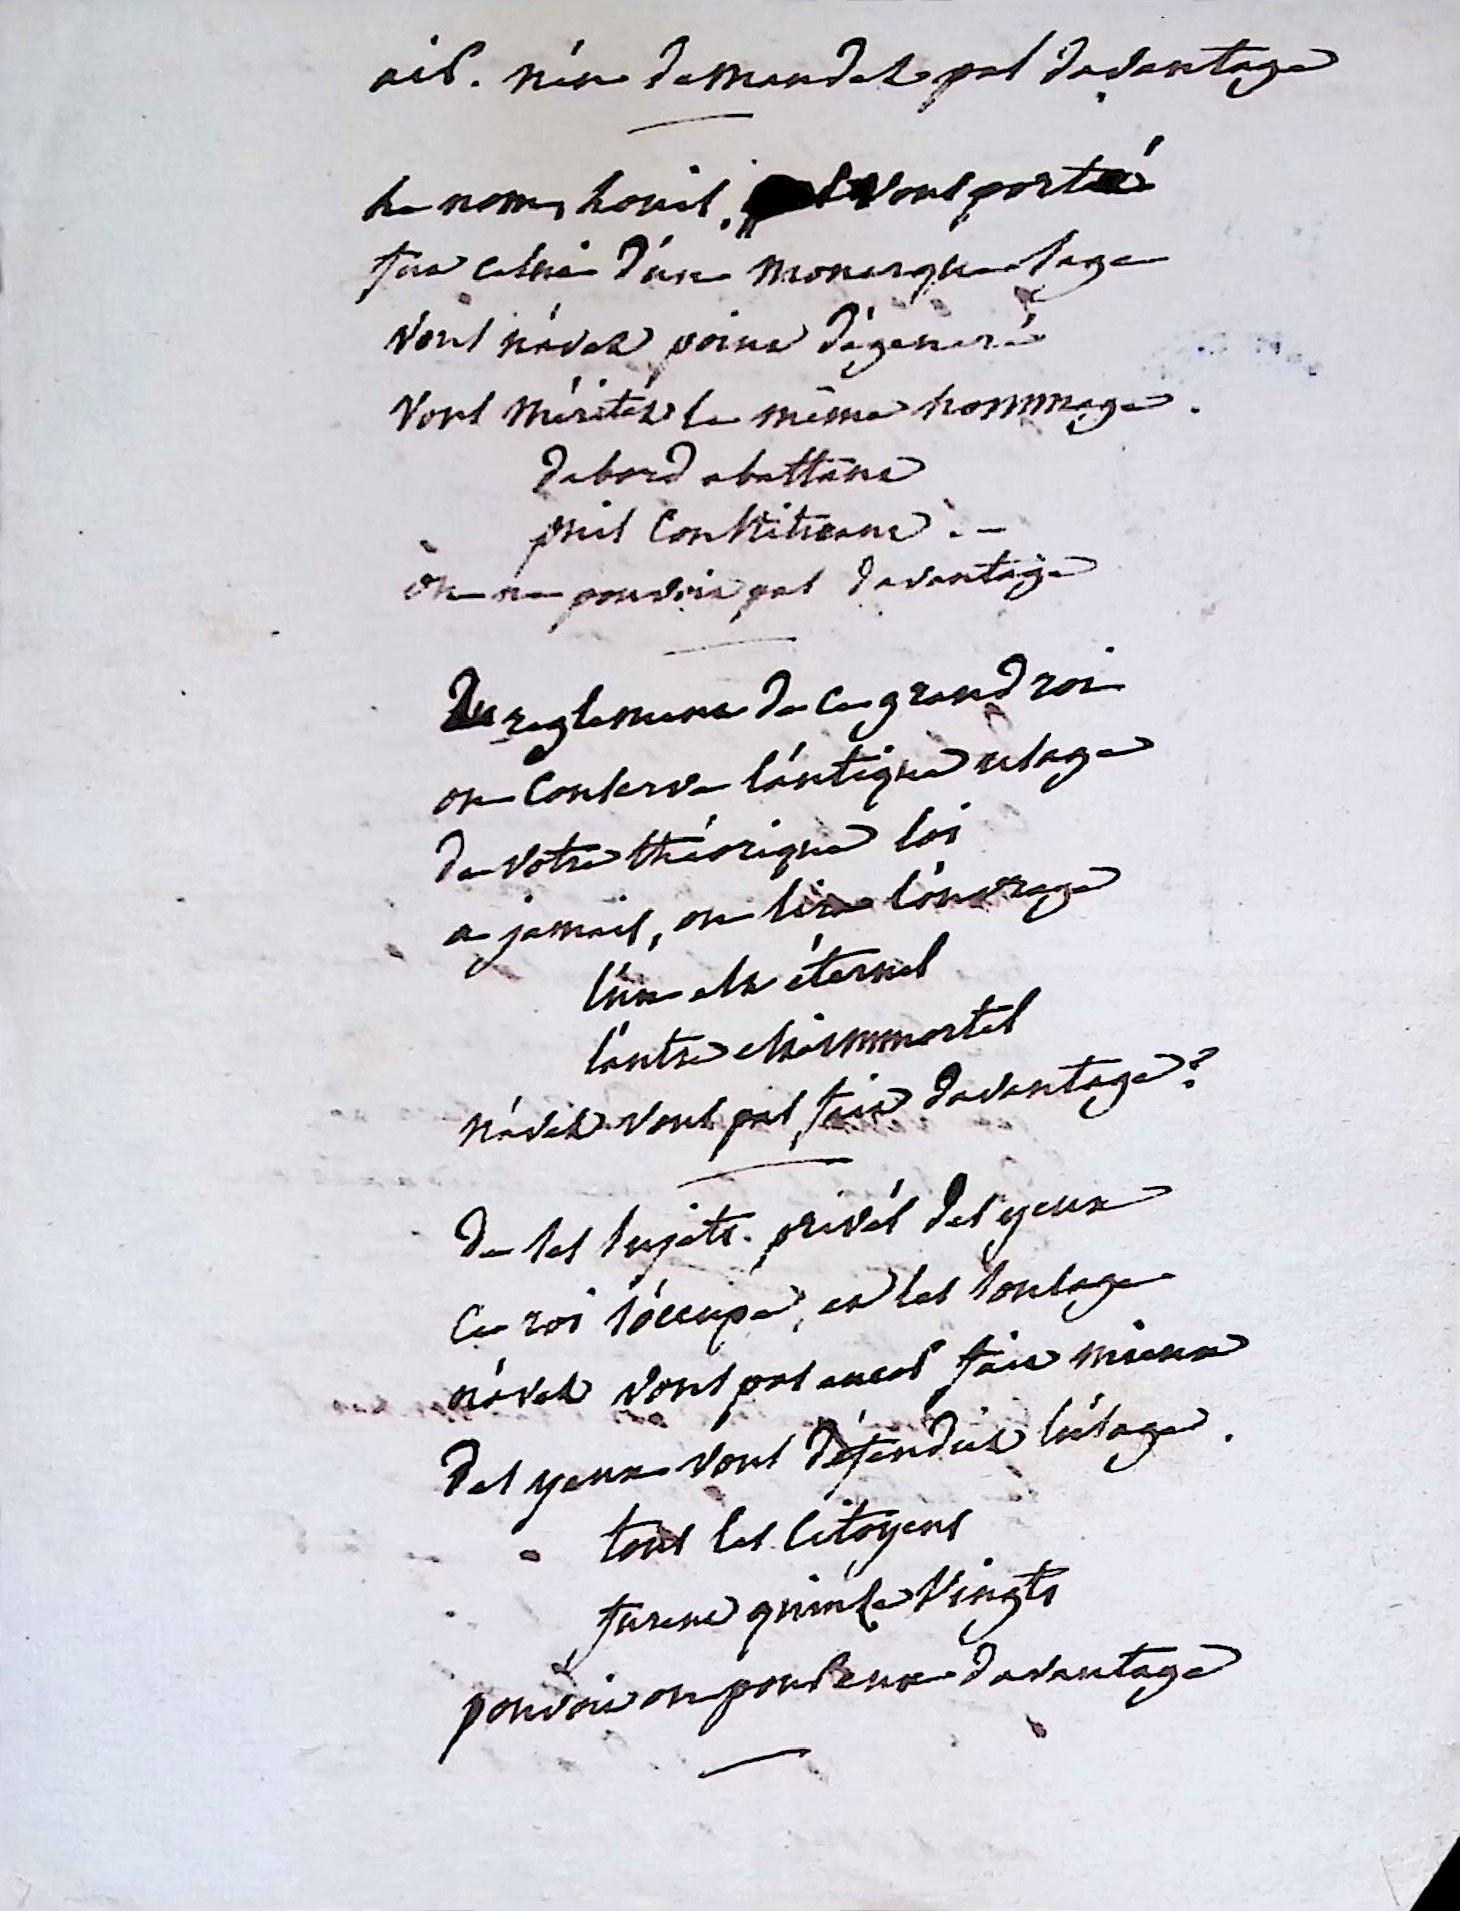 air. n'en demandez pas davantage
le nom, louis, vous porté
fut celui d'un monarque sage
vous n'avez point dégeneré
vous méritéz le même hommage.
dabord abattant
puis constituant. -
on ne pouvoit pas davantage
du reglement de ce grand roi
on conserve l'antique usage
de votre théorique loi
a jamais, on lira l'ouvrage
l'un est éternel
l'autre est immortel
n'avez vous pas fait davantage?
de ses sujets. privés des yeux
ce roi s'occupa, et les soulage
n'avez vous pas encor fait mieux
des yeux vous défendiez l'usage.
tous les citoyens
furent quinze vingts
pouvoit on pour eux davantage